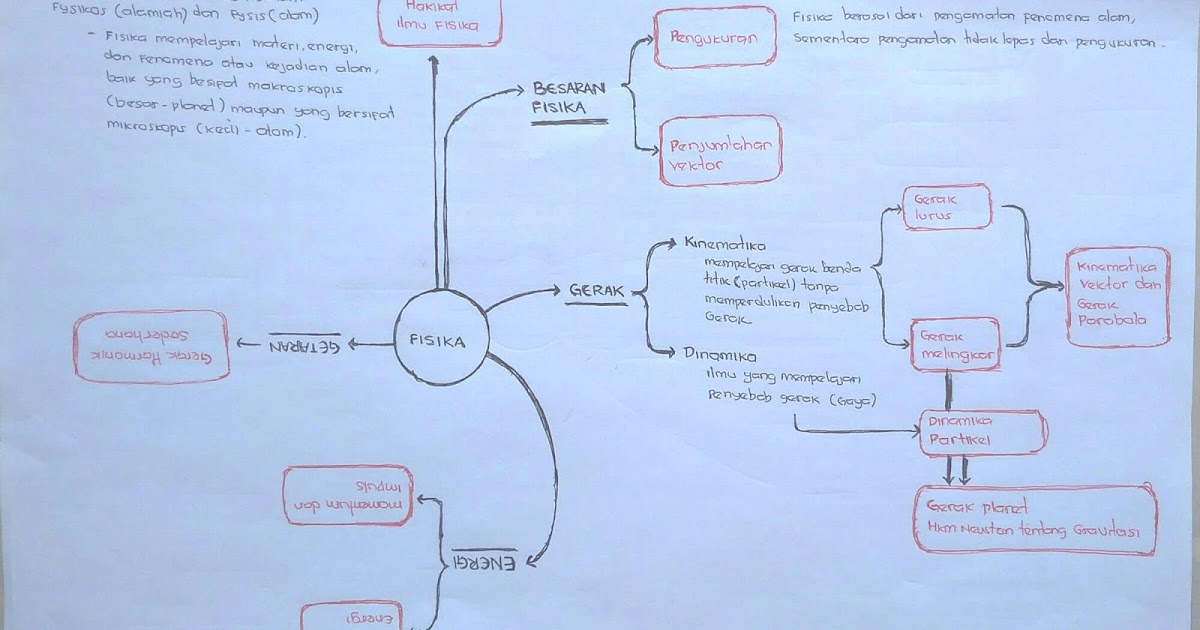 Fysikos (alamiah) dan Fysis (alam)
- Fisika mempelajari materi, energi,
dan Fenomena atau kejadian alam,
baik yang besifat makroskopis
(besar-planet) maupun yang bersifat
mikroskopis (kecil-atom).
Hakikat
Ilmu FISIKA
BESARAN
FISIKA
Pengukuran
Fisika berasal dari pengamatan fenomena alam,
Sementara pengamatan tidak lepas dari pengukuran.
Penjumlahan
vektor
FISIKA
GERAK
Kinematika
mempelajari gerak benda
titik (partikel) tanpa
memperdulikan penyebab
Gerak
Dinamika
Ilmu yang mempelajari
Penyebab gerak (Gaya)
Gerak
lurus
Gerak
melingkar
Kinematika
Vektor dan
Gerak
Parabola
Dinamika
Partikel
Gerak planet
Hkm Newton tentang Gravitasi
GETARAN
Gerak Harmonik
Sederhana
ENERGI
momentum dan
Impuls
Energi